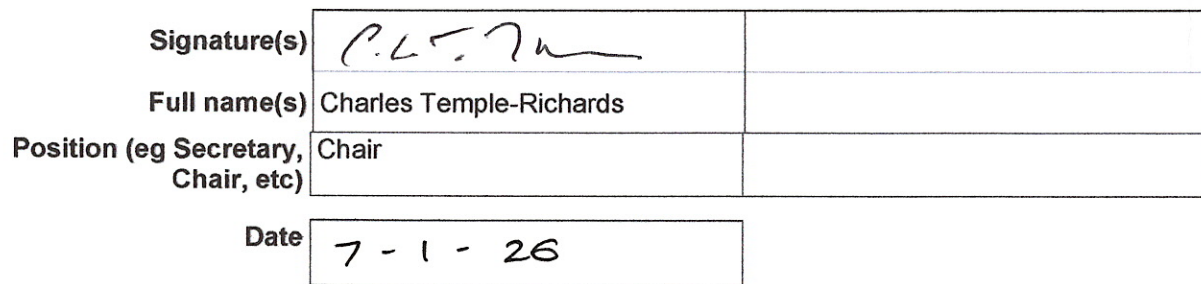 Signature(s)
Full name(s) Charles Temple-Richards
Position (eg Secretary, Chair
Chair, etc)
Date 7 - 1 - 26